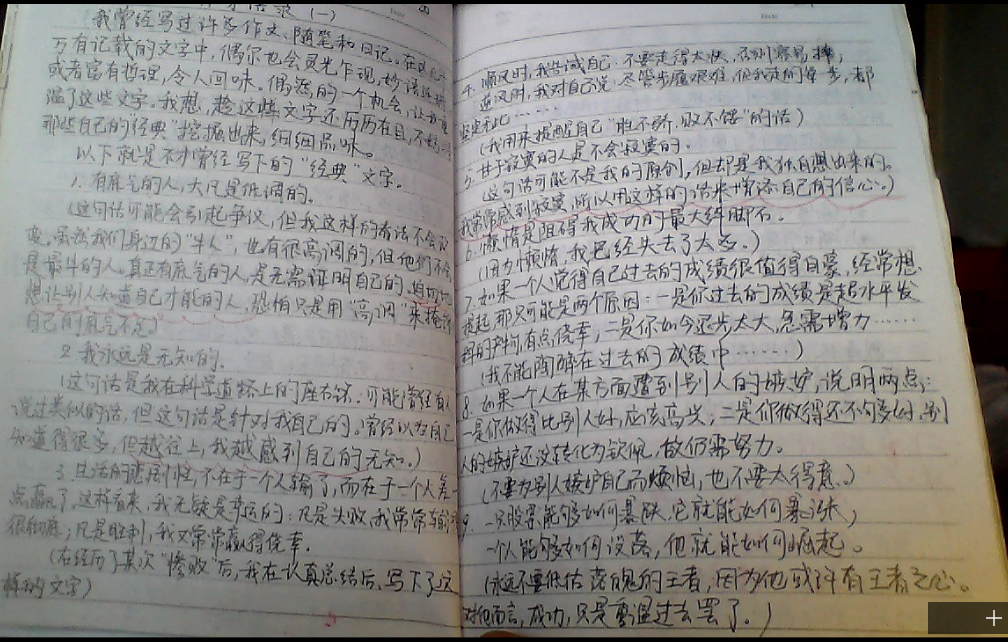 语录（一）
（我曾经写过许多作文、随笔和日记。在这
万有记载的文字中，偶尔也会灵光乍现，妙语连
或者富有哲理，令人回味。偶然的一个机会，让我
这些文字。我想，趁这些文字还历历在目，不妨
那些自己的"经典"挖掘出来，细细品味。
以下就是不才曾经写下的"经典"文字。
1. 有底气的人，大凡是低调的。
（这句话可能会引起争议，但我这样的看法不会改
变。虽然我们身边的"牛人"，也有很高调的，但他们不
是最牛的人。真正有底气的人，是无需证明自己的。
想让别人知道自己才能的人，恐怕只是用"高调"来掩
自己的底气不足）
2. 我永远是无知的。
（这句话是我在科学道路上的座右铭。可能曾经有人
说过类似的话，但这句话是针对我自己的。曾经以为自己
知道得很多，但越往上，我越感到自己的无知。）
3. 生活的悲剧性，不在于一个人输了，而在于一个人差一
点赢了。这样看来，我无疑是幸运的：凡是失败，我常常输得
很彻底；凡是胜利，我又常常赢得侥幸。
（在经历了某次"惨败"后，我在认真总结后，写下了这
样的文字）
4. 顺风时，我告诫自己，不要走得太快，否则容易摔；
逆风时，我对自己说，尽管步履艰难，但我走的每一步，都
坚定无比……
（我用来提醒自己"胜不骄，败不馁"的话）
5. 甘于寂寞的人是不会寂寞的。
（这句话可能不是我的原创，但却是我独自想出来的。
我常常感到寂寞，所以用这样的话来增添自己的信心。）
6. 懒惰是阻碍我成功的最大绊脚石。
（因为懒惰，我已经失去了太多。）
7. 如果一个人觉得自己过去的成绩很值得自豪，经常想
提起，那只可能是两个原因：一是你过去的成绩是超水平发
挥的产物，有点侥幸，二是你如今退步太大，急需增力……
（我不能陶醉在过去的成绩中……）
8. 如果一个人在某方面遭到别人的嫉妒，说明两点：
一是你做得比别人好，应该高兴，二是你做得还不够好，别
人的嫉妒还没转化为钦佩，你仍需努力。
（不要为别人嫉妒自己而烦恼，也不要太得意。）
9. 一只股票能够如何暴跌，它就能如何暴涨；
一个人能够如何没落，他就能如何崛起。
（永远不要低估落魄的王者，因为他或许有王者之心。
对他而言，成功，只是重温过去罢了。）